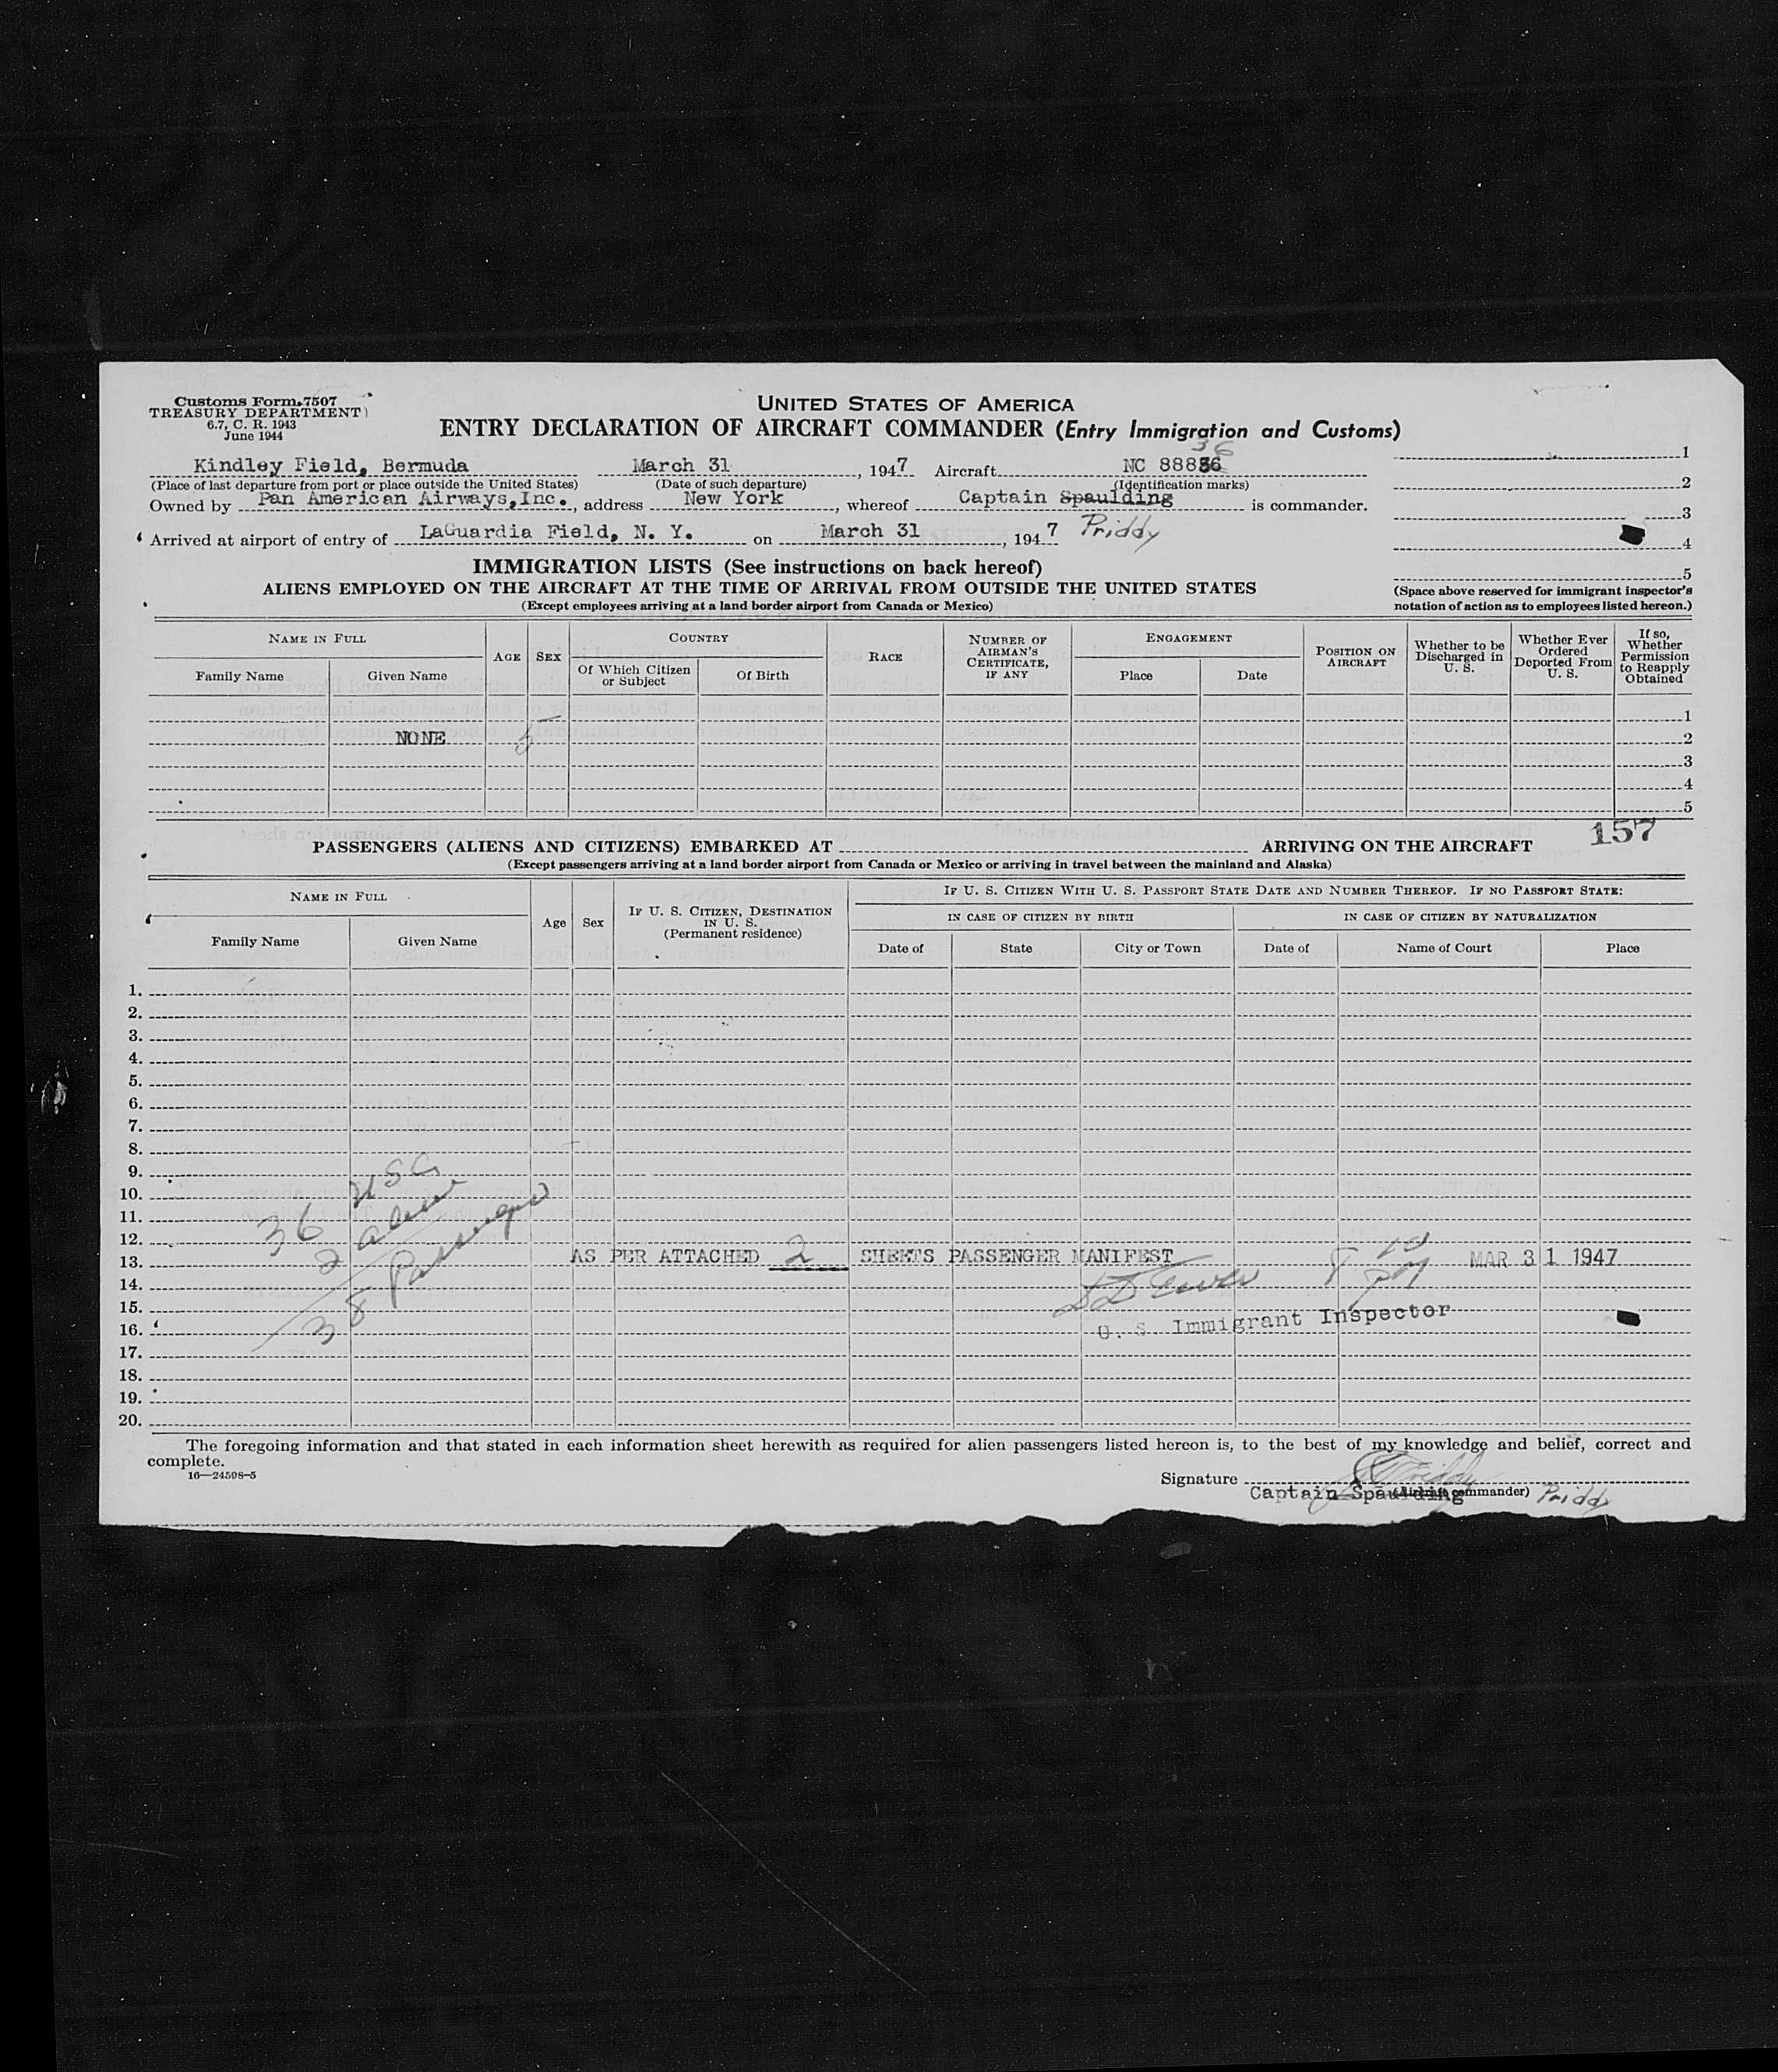 Customs Form 7507
TREASURY DEPARTMENT
6.7, C. R. 1943
June 1944
UNITED STATES OF AMERICA
ENTRY DECLARATION OF AIRCRAFT COMMANDER (Entry Immigration and Customs)
36
Kindley Field, Bermuda March 31, 1947 Aircraft NC 88836 1
(Place of last departure from port or place outside the United States) (Date of such departure) (Identification marks) 2
Owned by Pan American Airways, Inc., address New York, whereof Captain Spaulding is commander.
3
Arrived at airport of entry of LaGuardia Field, N. Y. on March 31, 1947 Priddy
4
IMMIGRATION LISTS (See instructions on back hereof)
5
ALIENS EMPLOYED ON THE AIRCRAFT AT THE TIME OF ARRIVAL FROM OUTSIDE THE UNITED STATES
(Except employees arriving at a land border airport from Canada or Mexico)
(Space above reserved for immigrant inspector's
notation of action as to employees listed hereon.)
NAME IN FULL
Family Name Given Name
AGE SEX
COUNTRY
Of Which Citizen or Subject
Of Birth
RACE
NUMBER OF AIRMAN'S CERTIFICATE, IF ANY
ENGAGEMENT
Place Date
POSITION ON AIRCRAFT
Whether to be Discharged in U. S.
Whether Ever Ordered Deported From U. S.
If so, Whether Permission to Reapply Obtained
1
NONE 2
3
4
5
157
PASSENGERS (ALIENS AND CITIZENS) EMBARKED AT ARRIVING ON THE AIRCRAFT
(Except passengers arriving at a land border airport from Canada or Mexico or arriving in travel between the mainland and Alaska)
NAME IN FULL
Family Name Given Name
Age Sex
IF U. S. CITIZEN, DESTINATION IN U. S.
(Permanent residence)
IF U. S. CITIZEN WITH U. S. PASSPORT STATE DATE AND NUMBER THEREOF. IF NO PASSPORT STATE:
IN CASE OF CITIZEN BY BIRTH IN CASE OF CITIZEN BY NATURALIZATION
Date of State City or Town Date of Name of Court Place
1.
2.
3.
4.
5.
6.
7.
8.
9.
10.
11.
12.
13. AS PER ATTACHED 2 SHEETS PASSENGER MANIFEST MAR 31 1947
14.
15.
16. U. S. Immigrant Inspector
17.
18.
19.
20.
36 USC
2 aliens
38 Passengers
The foregoing information and that stated in each information sheet herewith as required for alien passengers listed hereon is, to the best of my knowledge and belief, correct and
complete.
16—24598-5
Signature
Captain Spaulding (Aircraft commander) Priddy